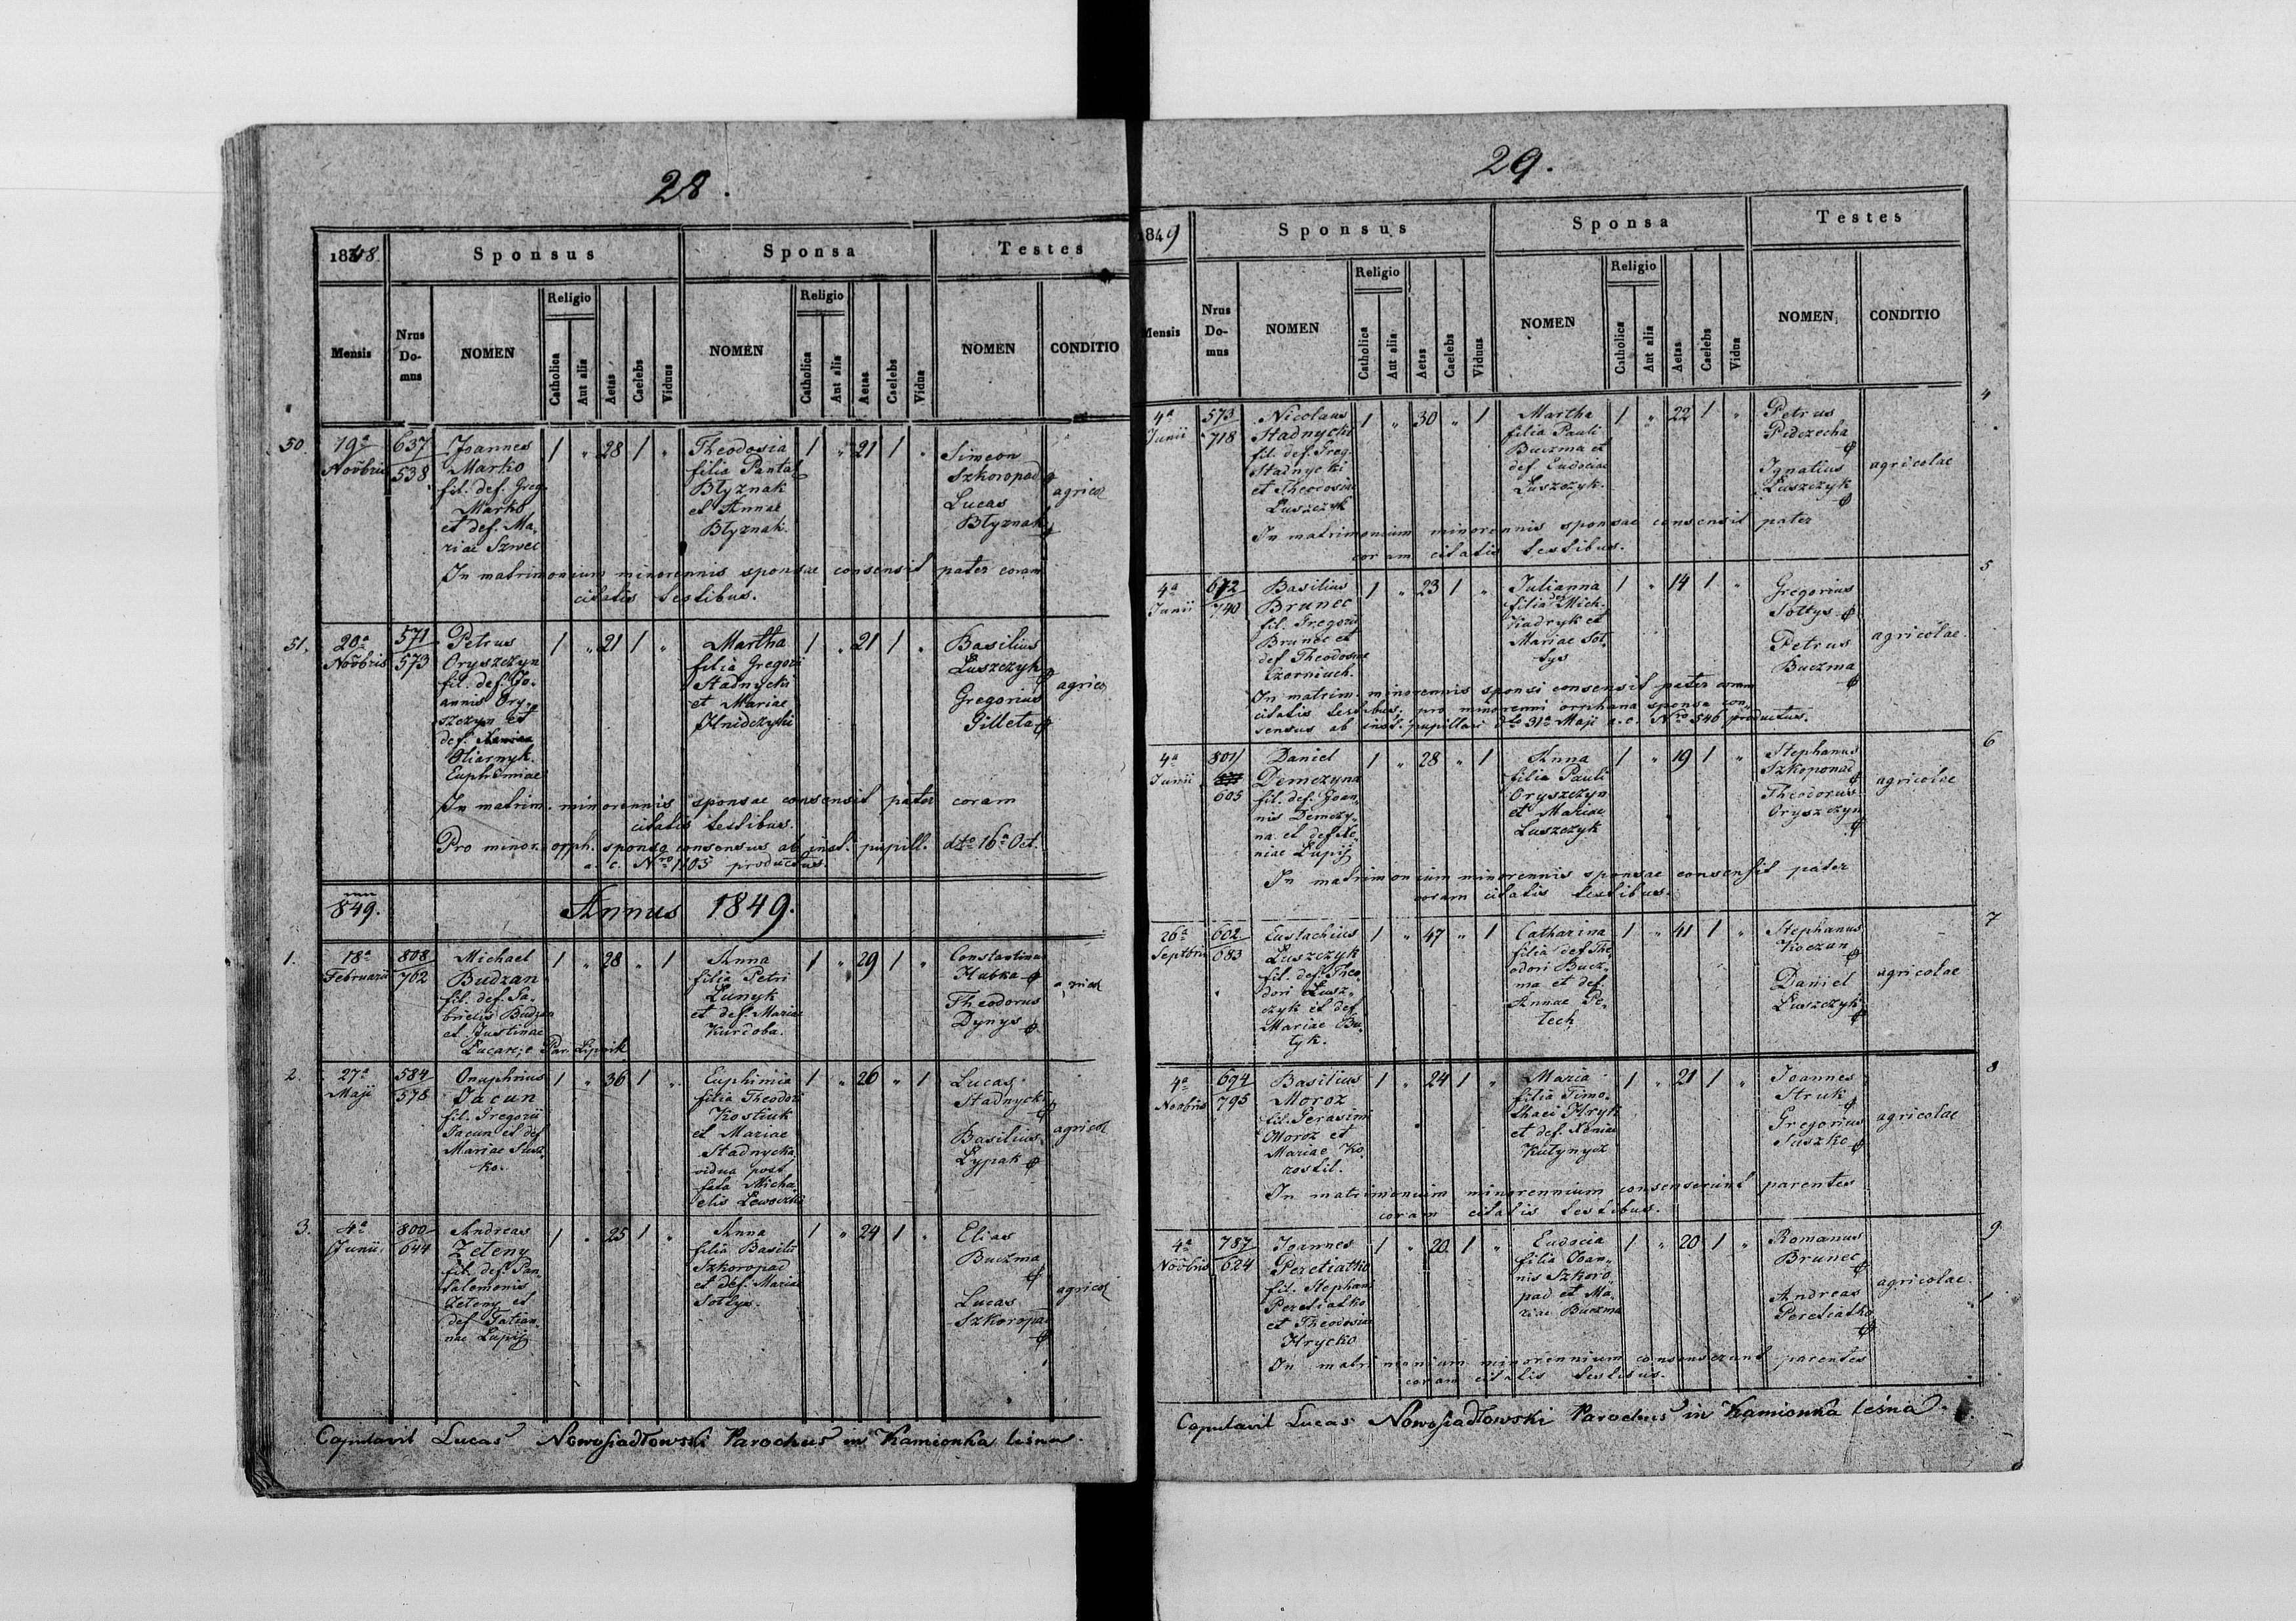 28.
1848.
Sponsus
Sponsa
Testes
Mensis
Nrus Do- mus
NOMEN
Religio
Catholica
Aut alia
Aetas
Caelebs
Viduus
NOMEN
Religio
Catholica
Aut alia
Aetas
Caelebs
Vidua
NOMEN
CONDITIO
50.
19a
Novbris
637
538
Joannes
Marko
fil. def. Greg.
Marko
et def. Ma-
riae Szwec
1 " 28 1 "
Theodosia
filia Pantal
Błyznak
et Annae
Błyznak.
1 " 21 1 "
Simeon
Szkoropad
Lucas
Błyznak
agricol
In matrimonium minorennis sponsae consensit pater coram
citatis testibus.
51.
20a
Novbris
571
573
Petrus
Oryszczyn
fil. def. Jo-
annis Ory-
szczyn et
def.
Oliarnyk.
Euphemiae
1 " 21 1 "
Martha
filia Gregorii
Stadnycki
et Mariae
Hnidczycki
1 " 21 1 "
Basilius
Łuszczyk
Gregorius
Gilleta
agrico
In matrim. minorennis sponsae consensit pater coram
citatis testibus.
Pro minor. orph. sponso consensus ab inst. pupill. dto 16a Oct.
a. c. Nro 1105 productus.
849.
Annus 1849.
1.
18a
Februarii
808
762
Michael
Budzan
fil. def. Ga-
brielis Budzan
et Justinae
Lucare, e Par. Lipnik
1 " 28 " 1
Anna
filia Petri
Łunyk
et def. Mariae
Kurdoba.
1 " 29 1 "
Constantinus
Hubka
Theodorus
Dynys
2.
27a
Maji
584
578
Onuphrius
Jacun
fil. Gregorii
Jacun et def
Mariae Susz-
ko.
1 " 36 1 "
Euphimia
filia Theodori
Kostiuk
et Mariae
Stadnycka
vidua post
fata Micha-
elis Lewoczko
1 " 26 " 1
Lucas
Stadnycki
Basilius
Łypak
agricol
3.
4a
Junii
800
644
Andreas
Zeleny
fil. def. Pan-
talomonis
Zeleny et
def Tatian-
nae Lupij
1 " 25 1 "
Anna
filia Basilii
Szkoropad
et def. Mariae
Sołtys.
1 " 24 1 "
Elias
Buczma
Lucas
Szkoropad
agricol
Copulavit Lucas Nowosiadłowski Parochus in Kamionka leśna.
29.
1849
Sponsus
Sponsa
Testes
Mensis
Nrus Do- mus
NOMEN
Religio
Catholica
Aut alia
Aetas
Caelebs
Viduus
NOMEN
Religio
Catholica
Aut alia
Aetas
Caelebs
Vidua
NOMEN
CONDITIO
4
4a
Junii
573
718
Nicolaus
Stadnycki
fil. def. Greg.
Stadnycki
et Theodosiae
Łuszczyk
1 " 30 " 1
Martha
filia Pauli
Buczma et
def Eudociae
Łuszczyk.
1 " 22 1 "
Petrus
Pidczecha
Ignatius
Łuszczyk
agricolae
In matrimonium minorennis sponsae consensit pater
coram citatis testibus.
5
4a
Junii
672
740
Basilius
Brunec
fil. Gregorii
Brunec et
def Theodosiae
Czorniuch.
1 " 23 1 "
Julianna
filia def Mich.
Kadryk et
Mariae Soł-
tys
1 " 14 1 "
Gregorius
Sołtys
Petrus
Buczma
agricolae.
In matrim. minorennis sponsi consensit pater coram
citatis testibus. pro minorenni orphana sponsa con-
sensus ab inst. pupillari dto 31a Maji a. c. Nro 546 productus.
6
4a
Junii
801
605
Daniel
Demczyna
fil. def. Joan-
nis Demczy-
na et def Xe-
niae Lupij
1 " 28 " 1
Anna
filia Pauli
Oryszczyn
et Mariae
Łuszczyk
1 " 19 1 "
Stephanus
Szkoropad
Theodorus
Oryszczyn
agricolae
In matrimonium minorennis sponsae consensit pater
coram citatis testibus.
7
26a
Septbris
602
683
Eustachius
Łuszczyk
fil. def. Theo-
dori Łusz-
czyk et def
Mariae Bu-
tyk.
1 " 47 " 1
Catharina
filia def The-
odori Bucz-
ma et def.
Annae Pe-
lech
1 " 41 1 "
Stephanus
Koczan
Daniel
Łuszczyk
agricolae
8
4a
Novbris
694
795
Basilius
Moroz
fil. Gerasimi
Moroz et
Mariae Ko-
rostil.
1 " 24 1 "
Maria
filia Timo-
thaei Hryk
et def. Xeniae
Kutynycz
1 " 21 1 "
Joannes
Struk
Gregorius
Suszko
agricolae
In matrimonium minorennium consenserunt parentes
coram citatis testibus.
9
4a
Novbris
787
624
Joannes
Peretiatko
fil. Stephani
Peretiatko
et Theodosiae
Hrycko
1 " 20 1 "
Eudocia
filia Joan-
nis Szkoro-
pad et Ma-
riae Buczma
1 " 20 1 "
Romanus
Brunec
Andreas
Peretiatko
agricolae.
In matrimonium minorennium consenserunt parentes
coram citatis testibus.
Copulavit Lucas Nowosiadłowski Parochus in Kamionka leśna.